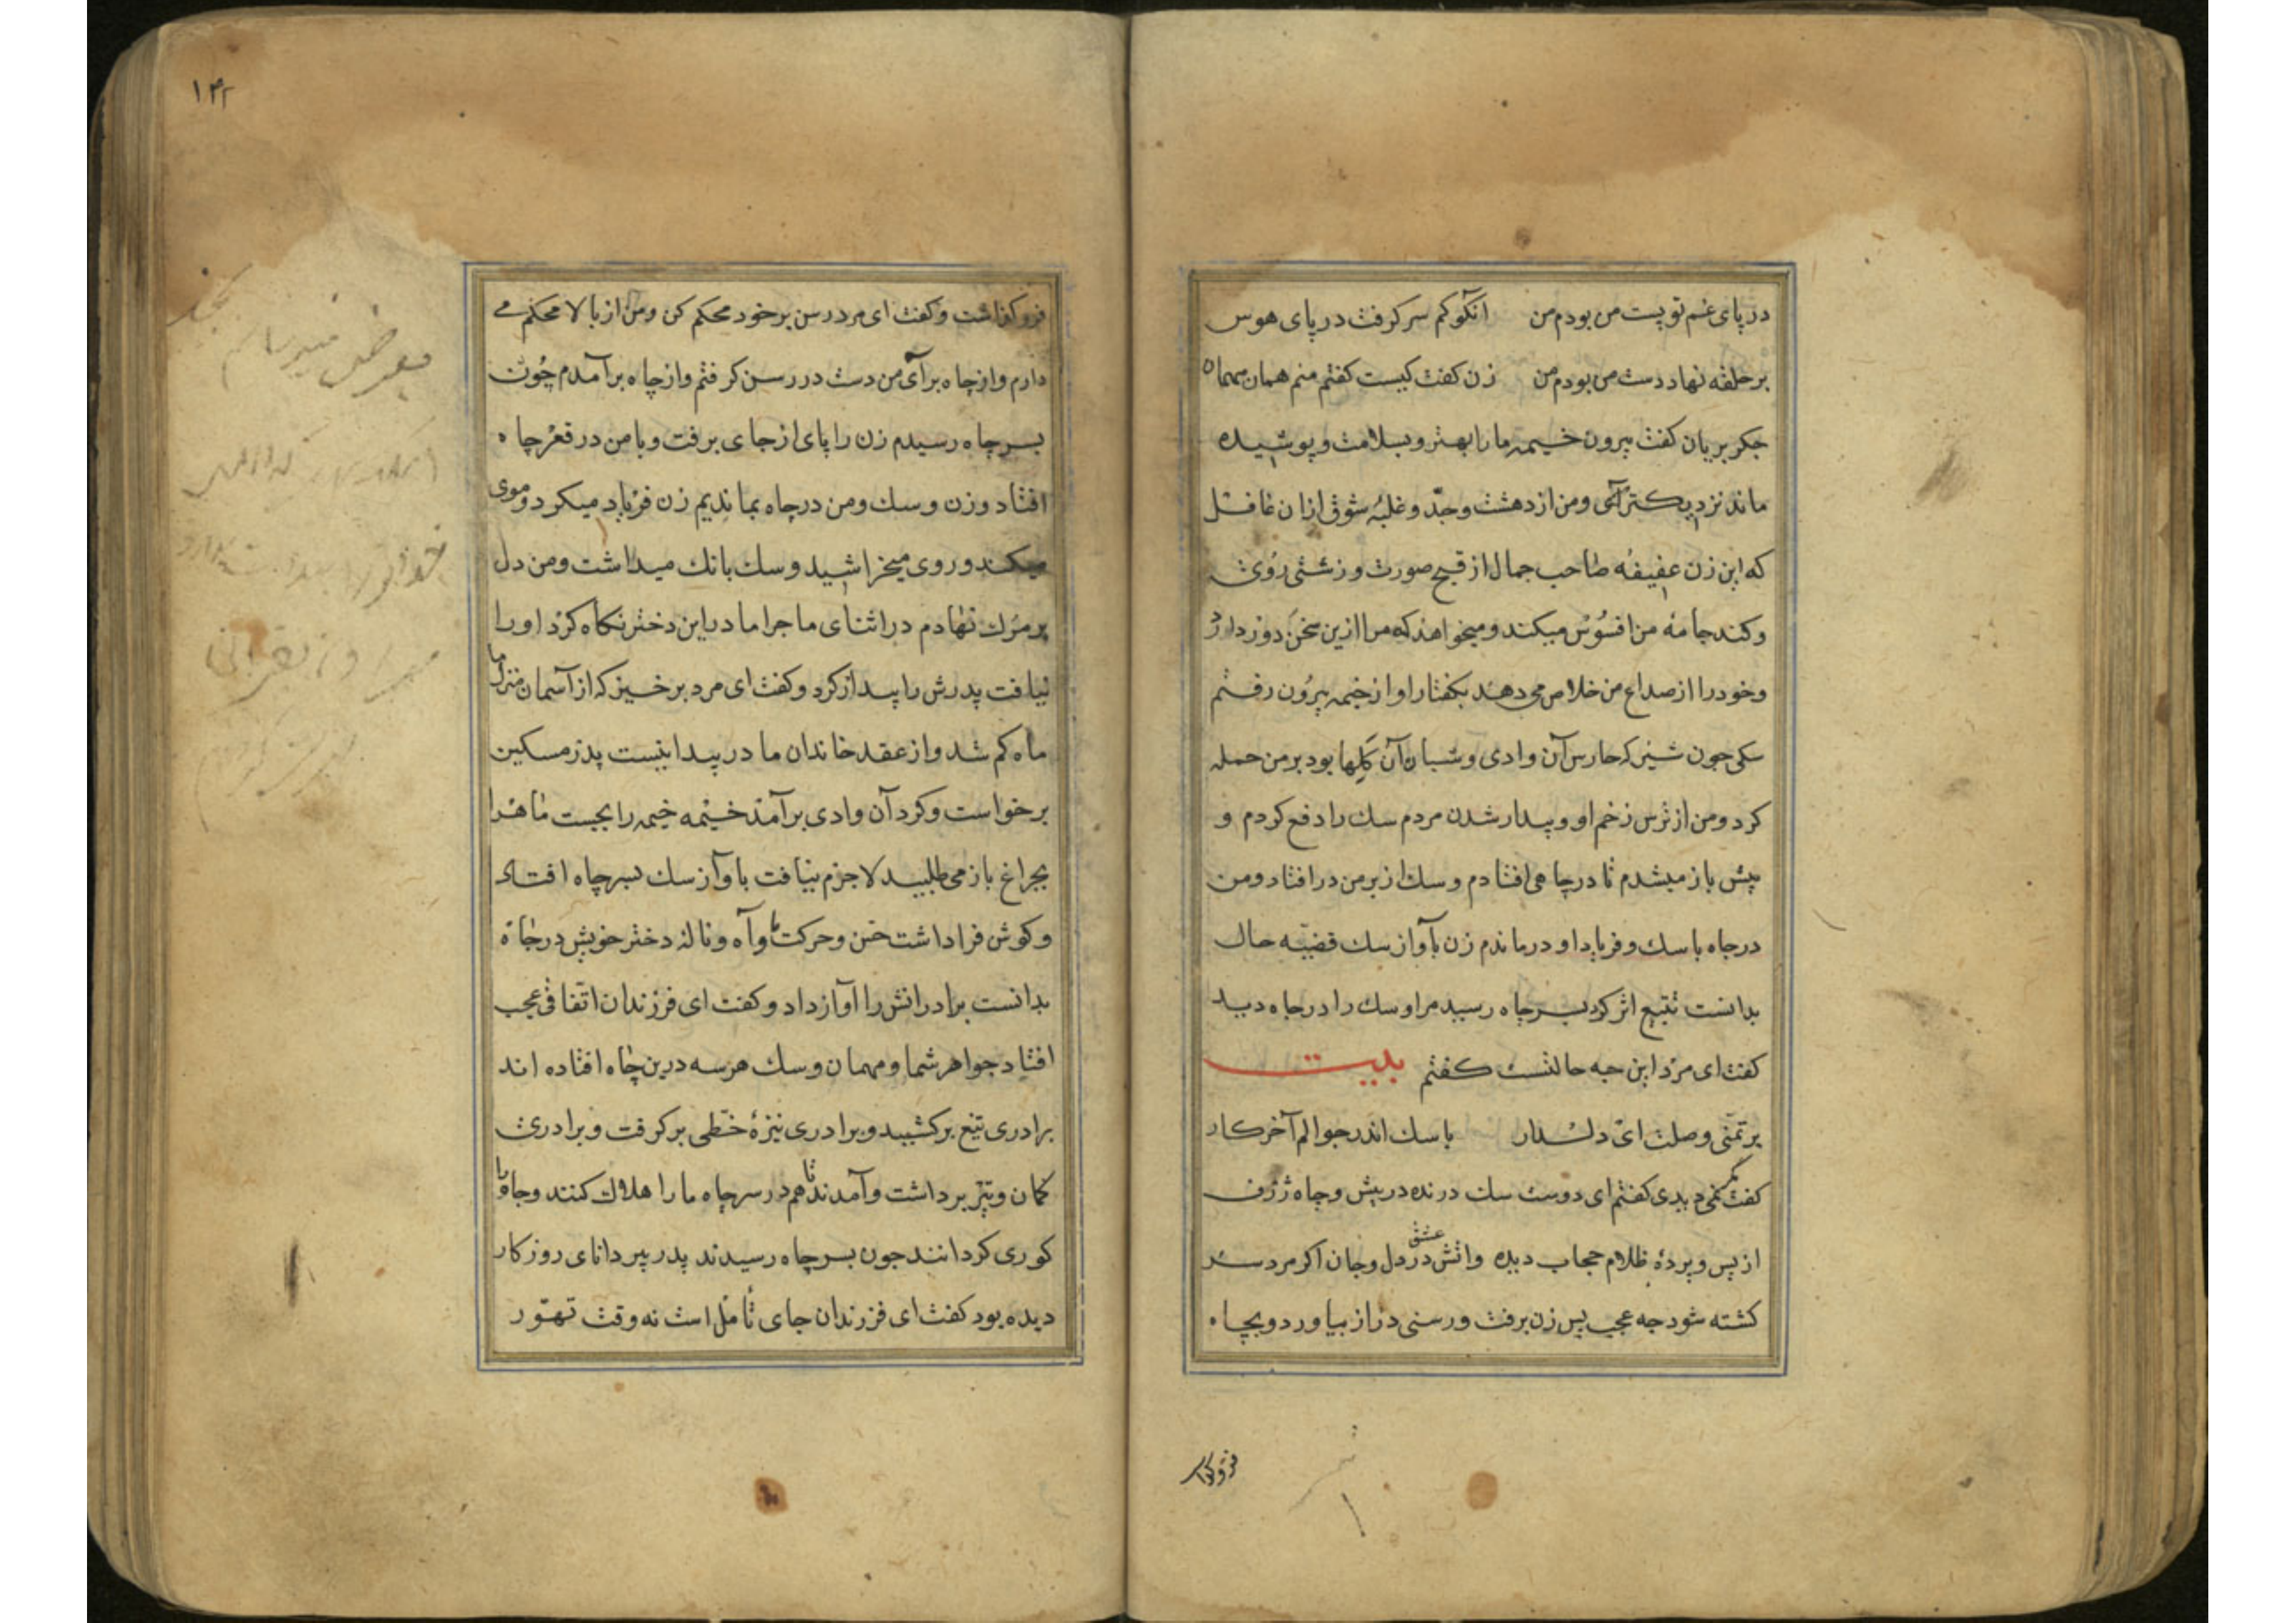 در پای غم تو پست من بودم من انکو کم سر کرفت در پای هوس
بر حلقه نهاد دست من بودم من زن کفت کیست کفتم منم همان مهمان
جکر بریان کفت بیرون خیمه ما را بهتر و بسلامت و پوشیده
ماند نزدیکتر آی و من از دهشت وجد و غلبهٔ شوق ازان غافل
که این زن عفیفه صاحب جمال از قبح صورت و زشتی روی
و کند جامهٔ من افسوس میکند و میخواهد که مرا ازین سخن دور دارد
و خود را از صداع من خلاص می دهد بکفتار او از خیمه بیرون رفتم
سکی جون شیر که حارس آن وادی و شبان آن کلها بود بر من حمله
کرد و من از ترس زخم او و بیدار شدن مردم سک را دفع کردم و
پس باز میشدم تا در جاهی افتادم و سک از بر من در افتاد و من
در جاه با سک و فریاد او درماندم زن بآواز سک قضیه حال
بدانست تتبع اثر کرد بسر جاه رسید مرا و سک را در جاه دید
کفت ای مرد این جه حالتست کفتم بیت
بر تمنی وصلت ای دلدار با سک اندر جوالم آخر کار
کفت نمی دیدی کفتم ای دوست سک درنده در پیش و چاه ژرف
از پس و پردهٔ ظلام حجاب دیده و اتش عشق در دل و جان اکر مرد سر
کشته شود جه عجب پس زن برفت و رسنی دراز بیاورد و بچاه
فروکذا
۱۳۲
فرو کذاشت و کفت ای مرد رسن بر خود محکم کن و من از بالا محکم می
دارم و از چاه برآی من دست در رسن کرفتم و از چاه برآمدم چون
بسر چاه رسیدم زن را پای از جای برفت و با من در قعر چاه
افتاد و زن و سک و من در چاه بماندیم زن فریاد میکرد و موی
میکند و روی میخراشید و سک بانک میداشت و من دل
بر مرک نهادم در اثنای ماجرا مادر این دختر نکاه کرد او را
نیافت پدرش را بیدار کرد و کفت ای مرد برخیز که از آسمان منزل ما
ماه کم شد و از عقد خاندان ما در پیدا نیست پدر مسکین
برخواست و کرد آن وادی برآمد خیمه خیمه را بجست ماه را
بجراغ باز می طلبید لا جرم نیافت باواز سک بسر چاه افتاد
و کوش فرا داشت حس و حرکت ما و آه و نالهٔ دختر خویش در چاه
بدانست برادرانش را آواز داد و کفت ای فرزندان اتفاقی عجب
افتاد جواهر شما و مهمان و سک هر سه درین چاه افتاده اند
برادری تیغ برکشید و برادری نیزهٔ خطی برکرفت و برادری
کمان و تیر برداشت و آمدند تا هم در سر چاه ما را هلاک کنند و چاه را
کوری کردانند جون بسر چاه رسیدند پدر پیر دانای روزکار
دیده بود کفت ای فرزندان جای تامل است نه وقت تهور